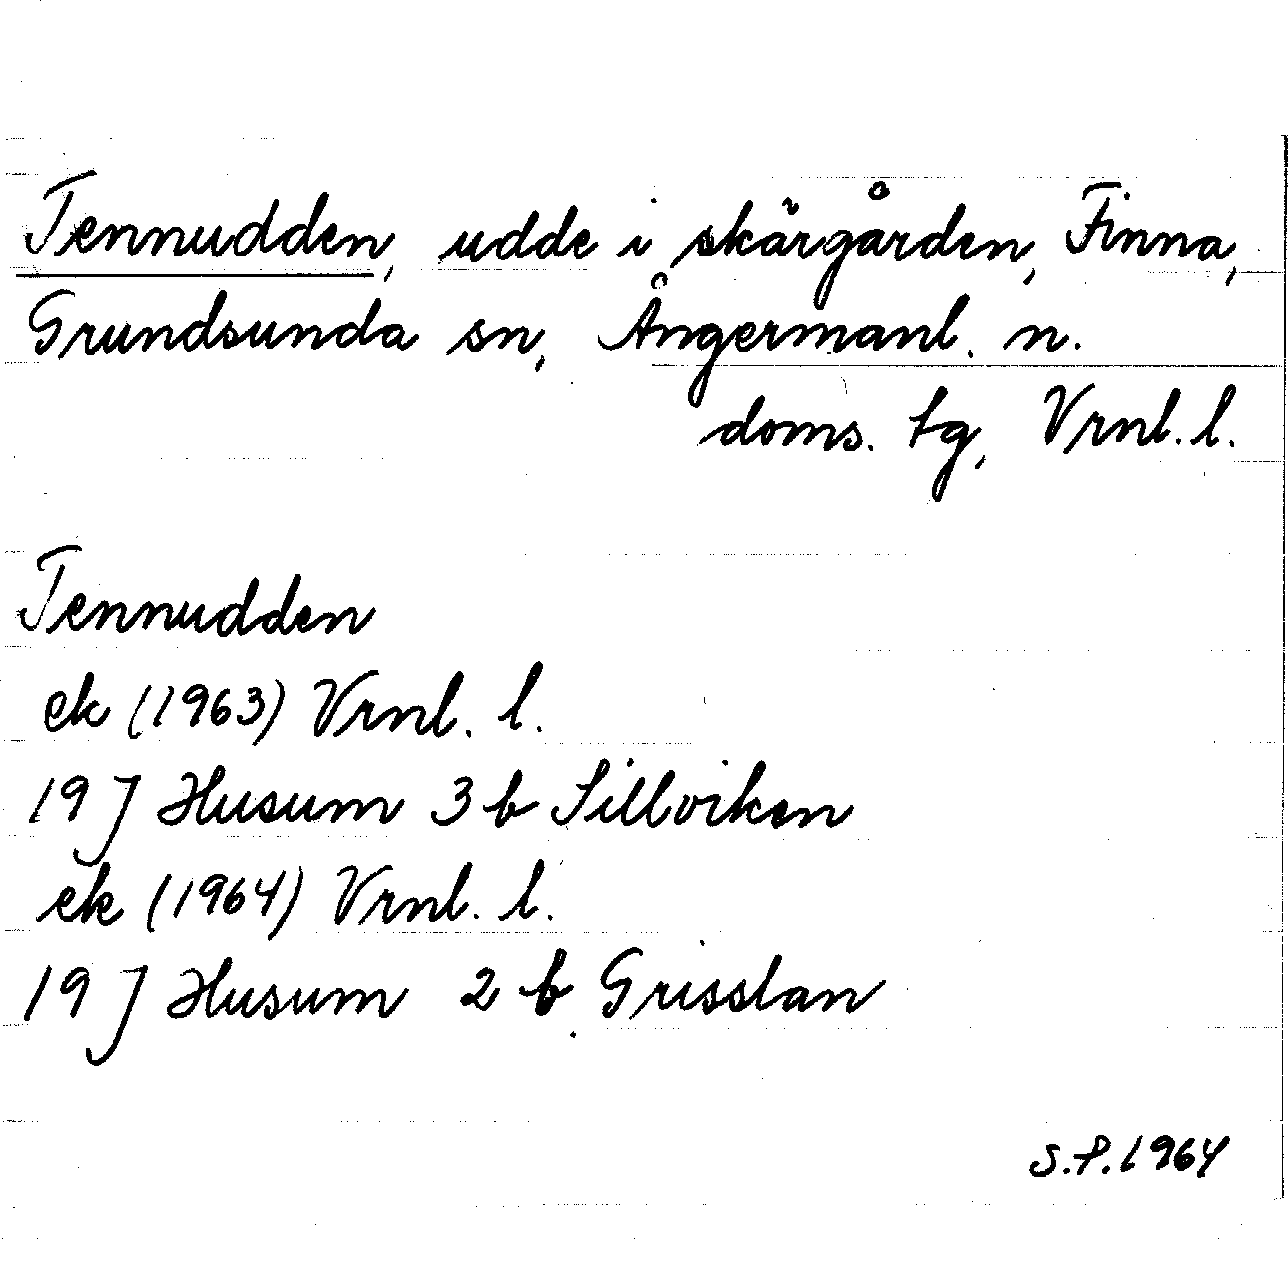 Tennudden, udde i skärgården, Finna,
Grundsunda sn, Ångermanl. n.
doms. tg, Vrnl. l.
Tennudden
ek (1963) Vrnl. l.
19 J Husum 3 b Sillviken
ek (1964) Vrnl. l.
19 J Husum 2 b Grisslan
S.P. 1964